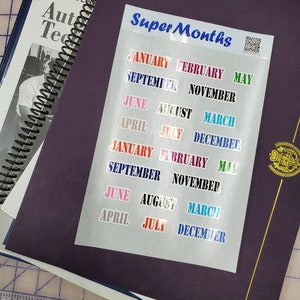 Super Months
JANUARY FEBRUARY MAY
SEPTEMBER NOVEMBER
JUNE AUGUST MARCH
APRIL JULY DECEMBER
JANUARY FEBRUARY MAY
SEPTEMBER NOVEMBER
JUNE AUGUST MARCH
APRIL JULY DECEMBER